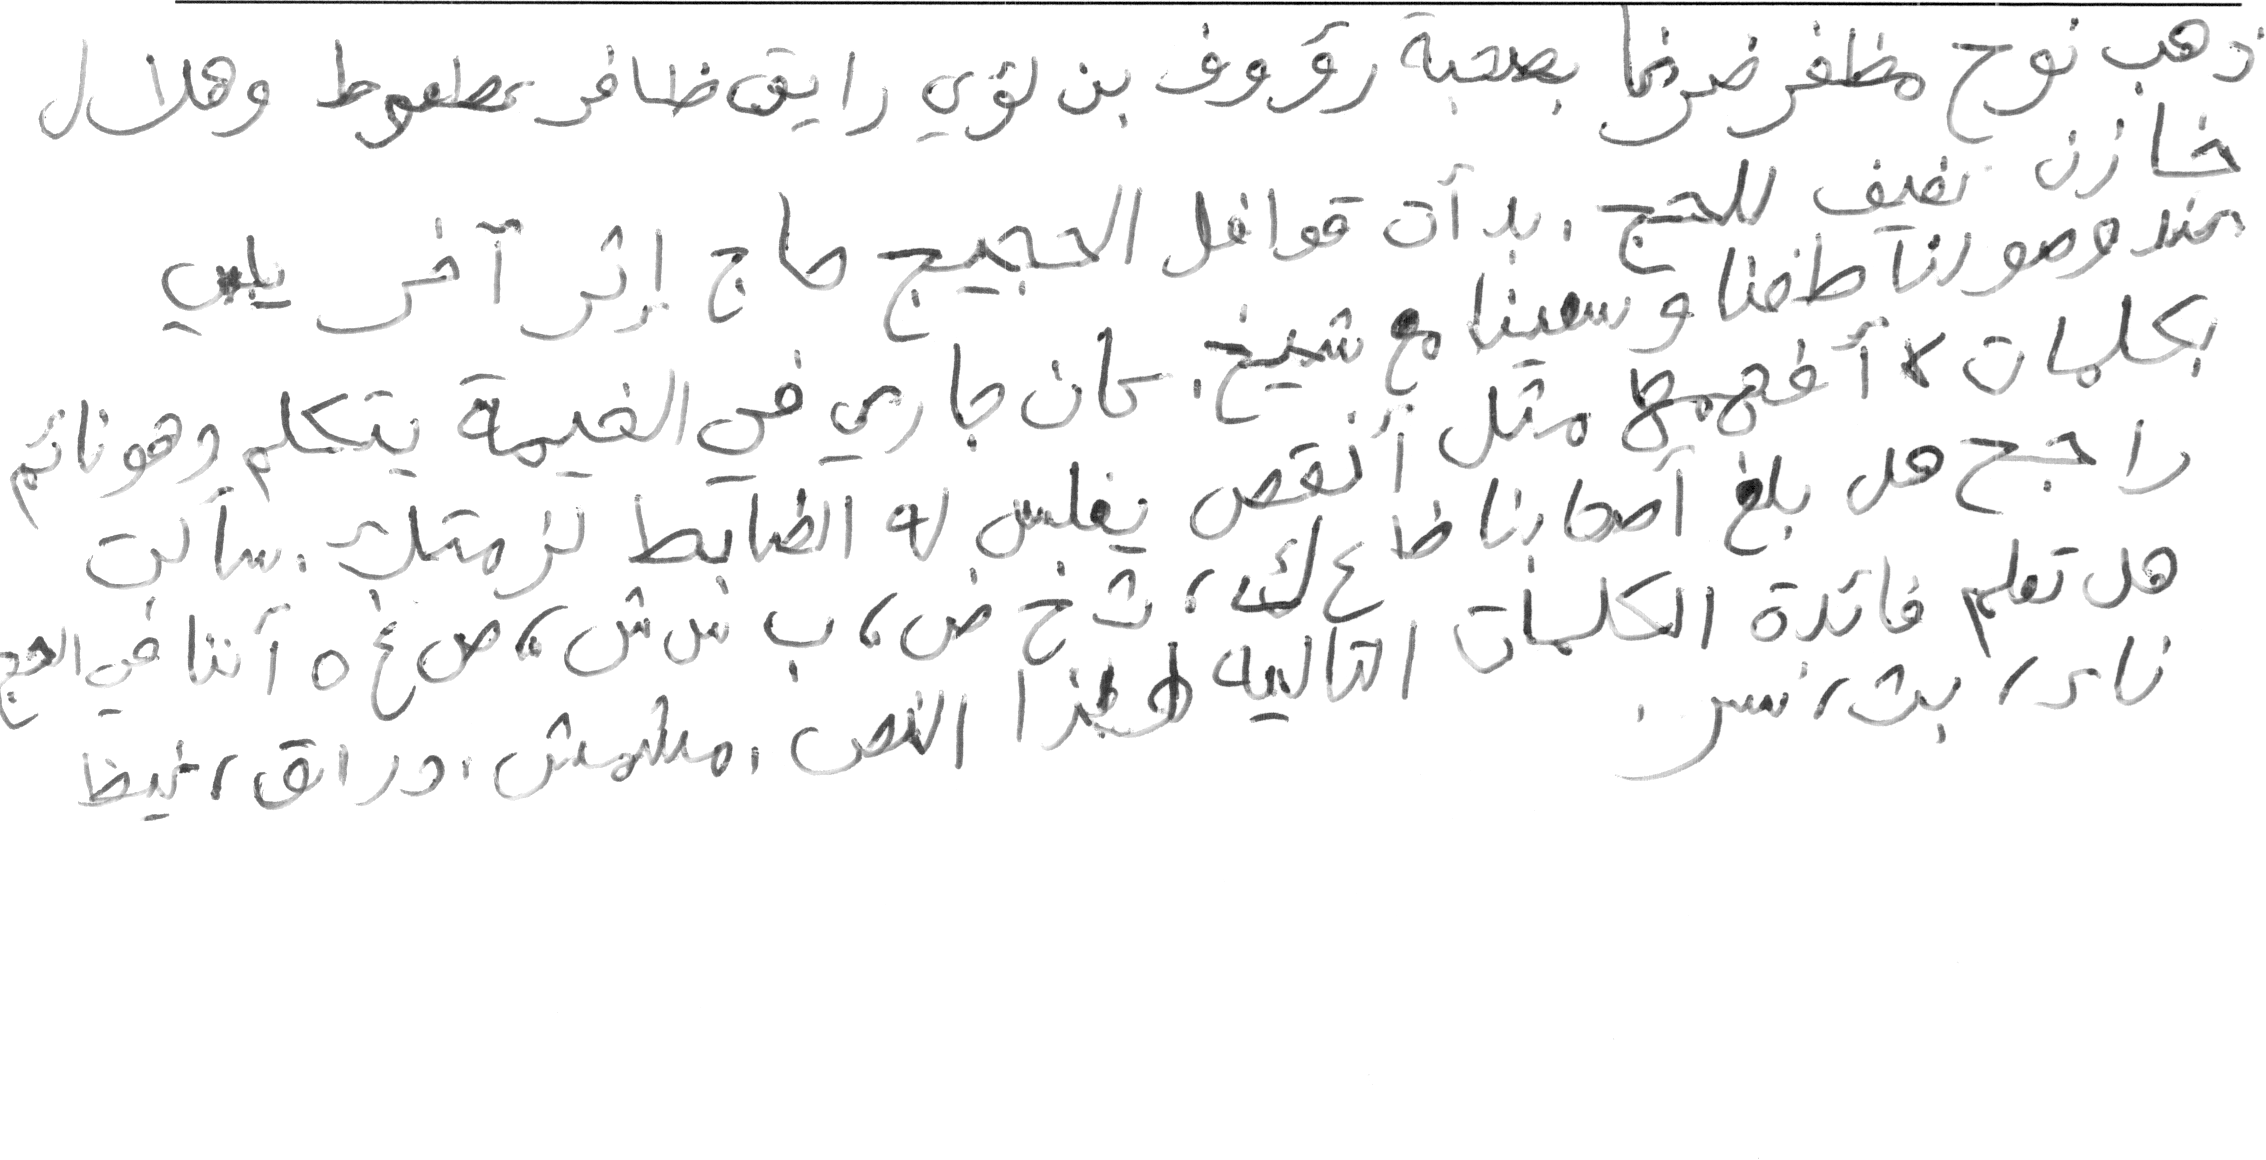 ذهب نوح مظفر ضرغام بصحبة رؤوف بن لؤي رايق ظافر عطعوط وهلال
خازن نضيف للحج . بدأت قوافل الحجيج حاج إثر آخر يلبي
عند وصولنا طفنا وسعينا مع شيخ . كان جاري في الخيمة يتكلم وهو نائم
بكلمات لا أفهمها مثل أنقص يغلبس له الضابط لزمتك . سألت
راجح هل بلغ أصحابنا ظ ع ك ، ث خ ض ، ب س ش ، ص غ ه أننا في الحج
هل تعلم فائدة الكلمات التاليه لهذا النص . مشمش ، دراق ، غيظ
نار ، بث ، نسر .